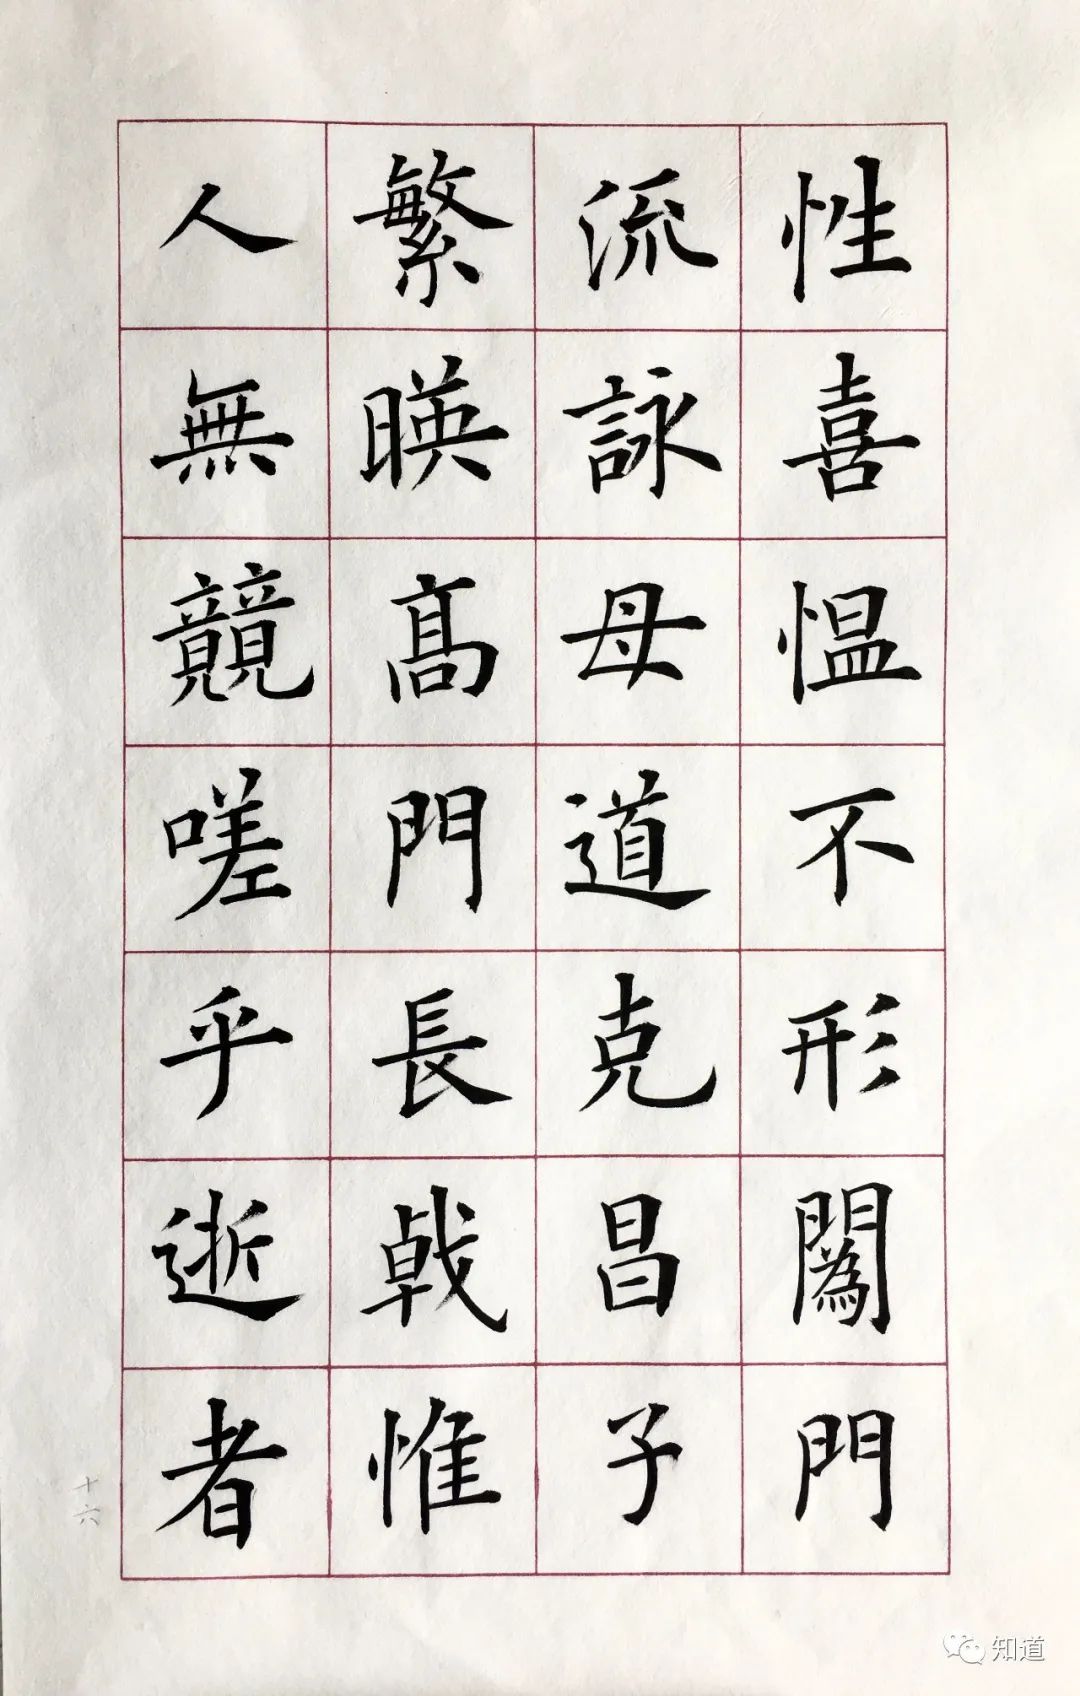 性喜愠不形闈門
流詠母道克昌子
繁暎高門長戟惟
人無競嗟乎逝者
十六
知道